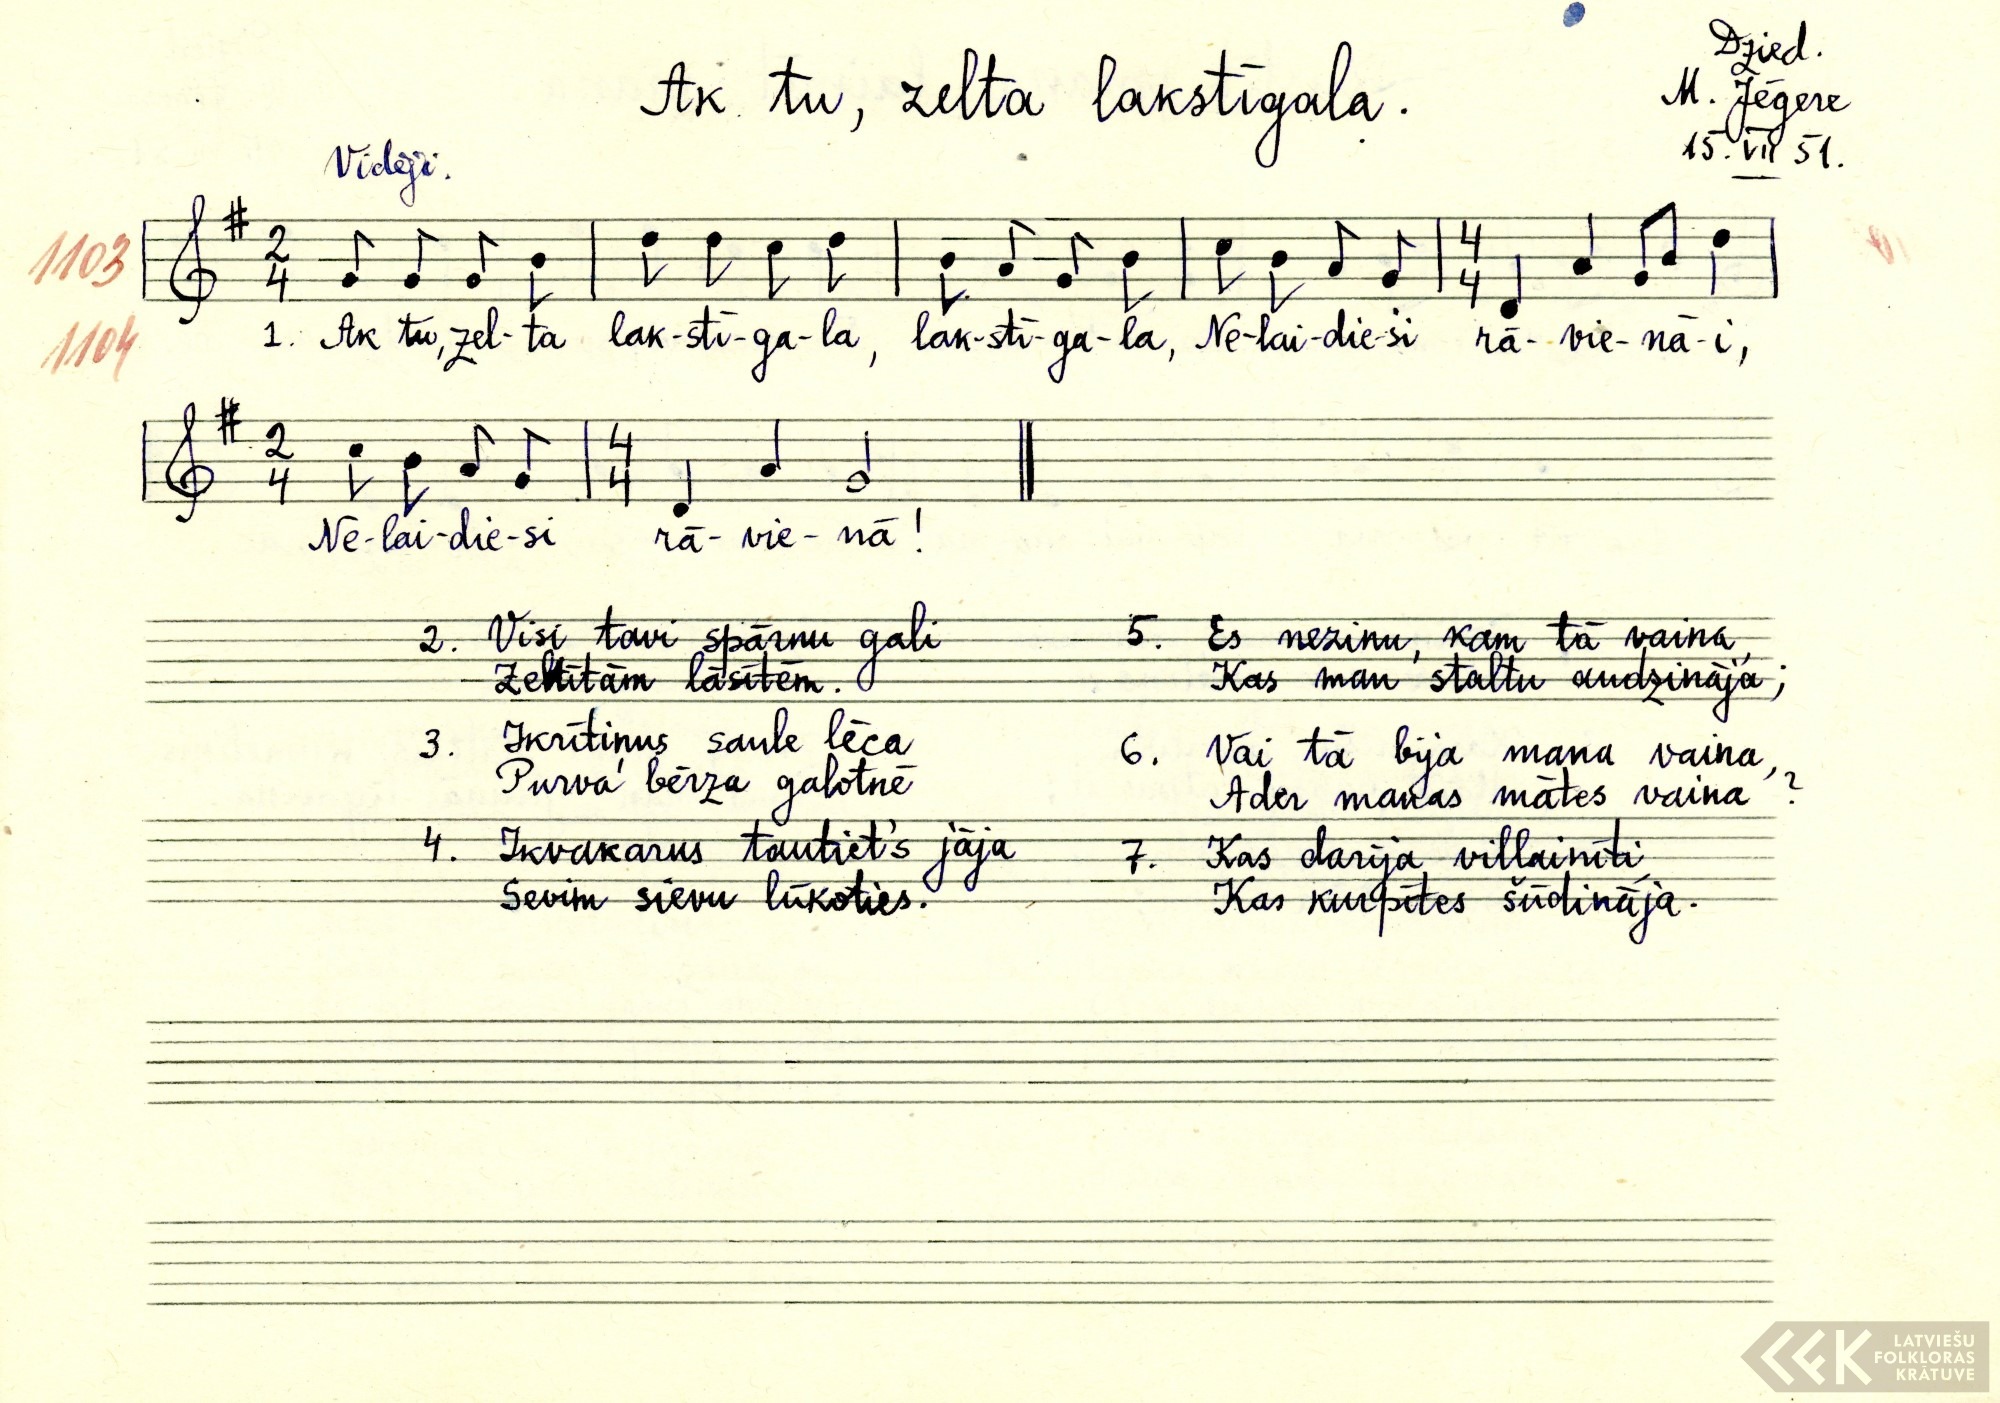 Ak tu, zelta lakstīgala.
Dzied.
M. Jēgere
15. VII 51.
Vidēji.
1103
2 4 4 4
1104
1. Ak tu, zel-ta lak-stī-ga-la, lak-stī-ga-la, Ne-lai-die-si rā-vie-nā-i,
2 4 4 4
Ne-lai-die-si rā-vie-nā!
2. Visi tavi spārnu gali
Zeltītām lāsītēm.
3. Ikrītiņus saule lēca
Purvā bērza galotnē
4. Ikvakarus tautiet's jāja
Sevim sievu lūkoties.
5. Es nezinu, kam tā vaina,
Kas man staltu audzināja;
6. Vai tā bija mana vaina,
Ader manas mātes vaina?
7. Kas darīja villainīti,
Kas kurpītes šūdināja.
LATVIEŠU
FOLKLORAS
KRĀTUVE